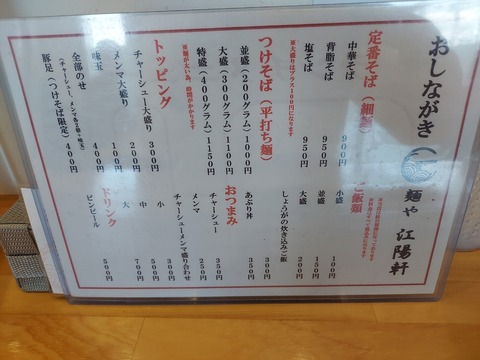 おしながき
麺や 江陽軒
定番そば（細麺）
中華そば 900円
背脂そば 950円
塩そば 950円
※大盛りはプラス100円になります
つけそば（平打ち麺）
並盛（200グラム）1000円
大盛（300グラム）1100円
特盛（400グラム）1150円
※麺が太い為、時間がかかります
トッピング
チャーシュー大盛り 300円
メンマ大盛り 200円
味玉 100円
全部のせ 400円
（チャーシュー、メンマ各少額＋味玉）
豚足（つけそば限定）400円
ご飯類
小盛 100円
並盛 150円
大盛 200円
しょうがの炊き込みご飯 300円
あぶり丼 350円
おつまみ
チャーシュー 350円
メンマ 250円
チャーシューメンマ盛り合わせ
小 300円
中 500円
大 700円
ドリンク
ビンビール 500円